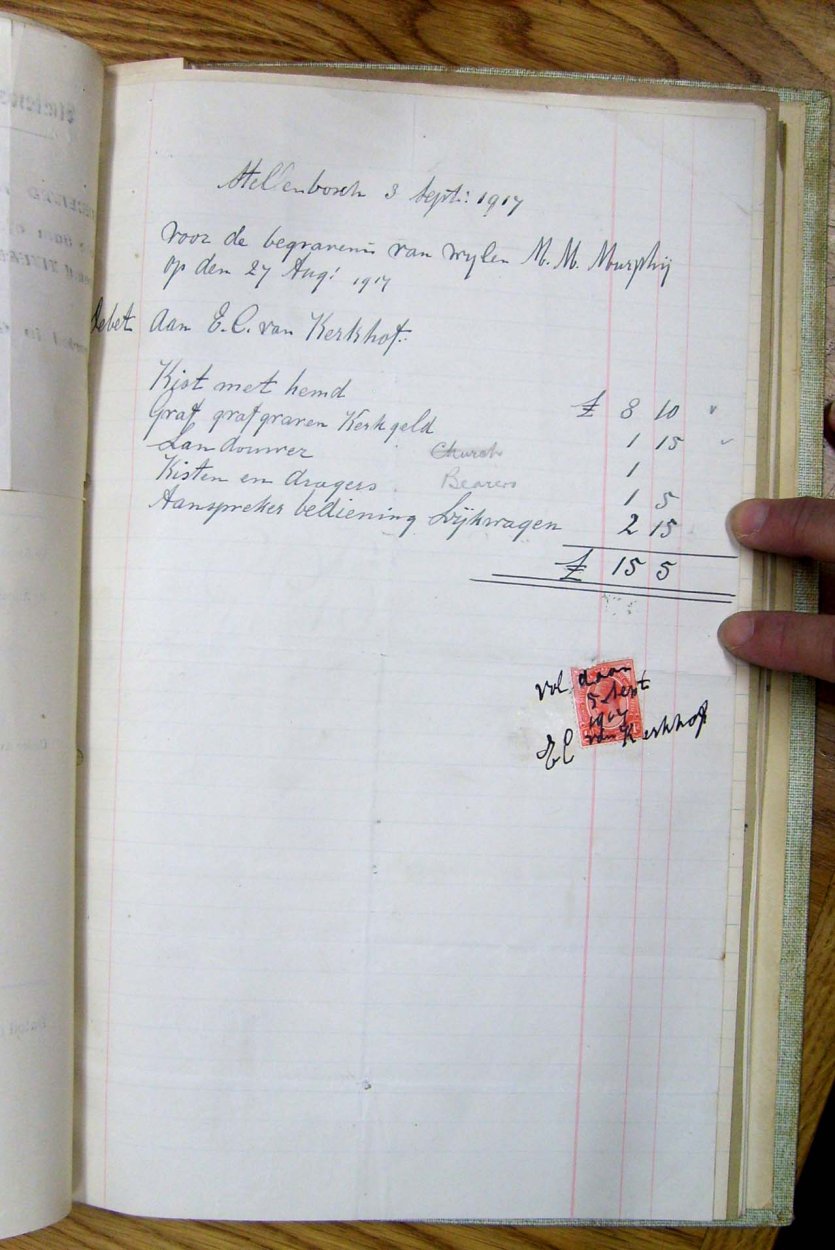 Stellenbosch 3 Sept: 1917
Voor de begravenis van wylen M. M. Murphij
op den 27 Aug: 1917
Debet Aan E. C. van Kerkhof.
Kist met hemd £ 8 10 "
Graf grafgraven Kerkgeld 1 15 "
Landouwer Church 1
Kisten en dragers Bearers 1 5
Aanspreker bediening Lijkwagen 2 15
£ 15 5
vol daan
5 Sept
1917
EC van Kerkhof